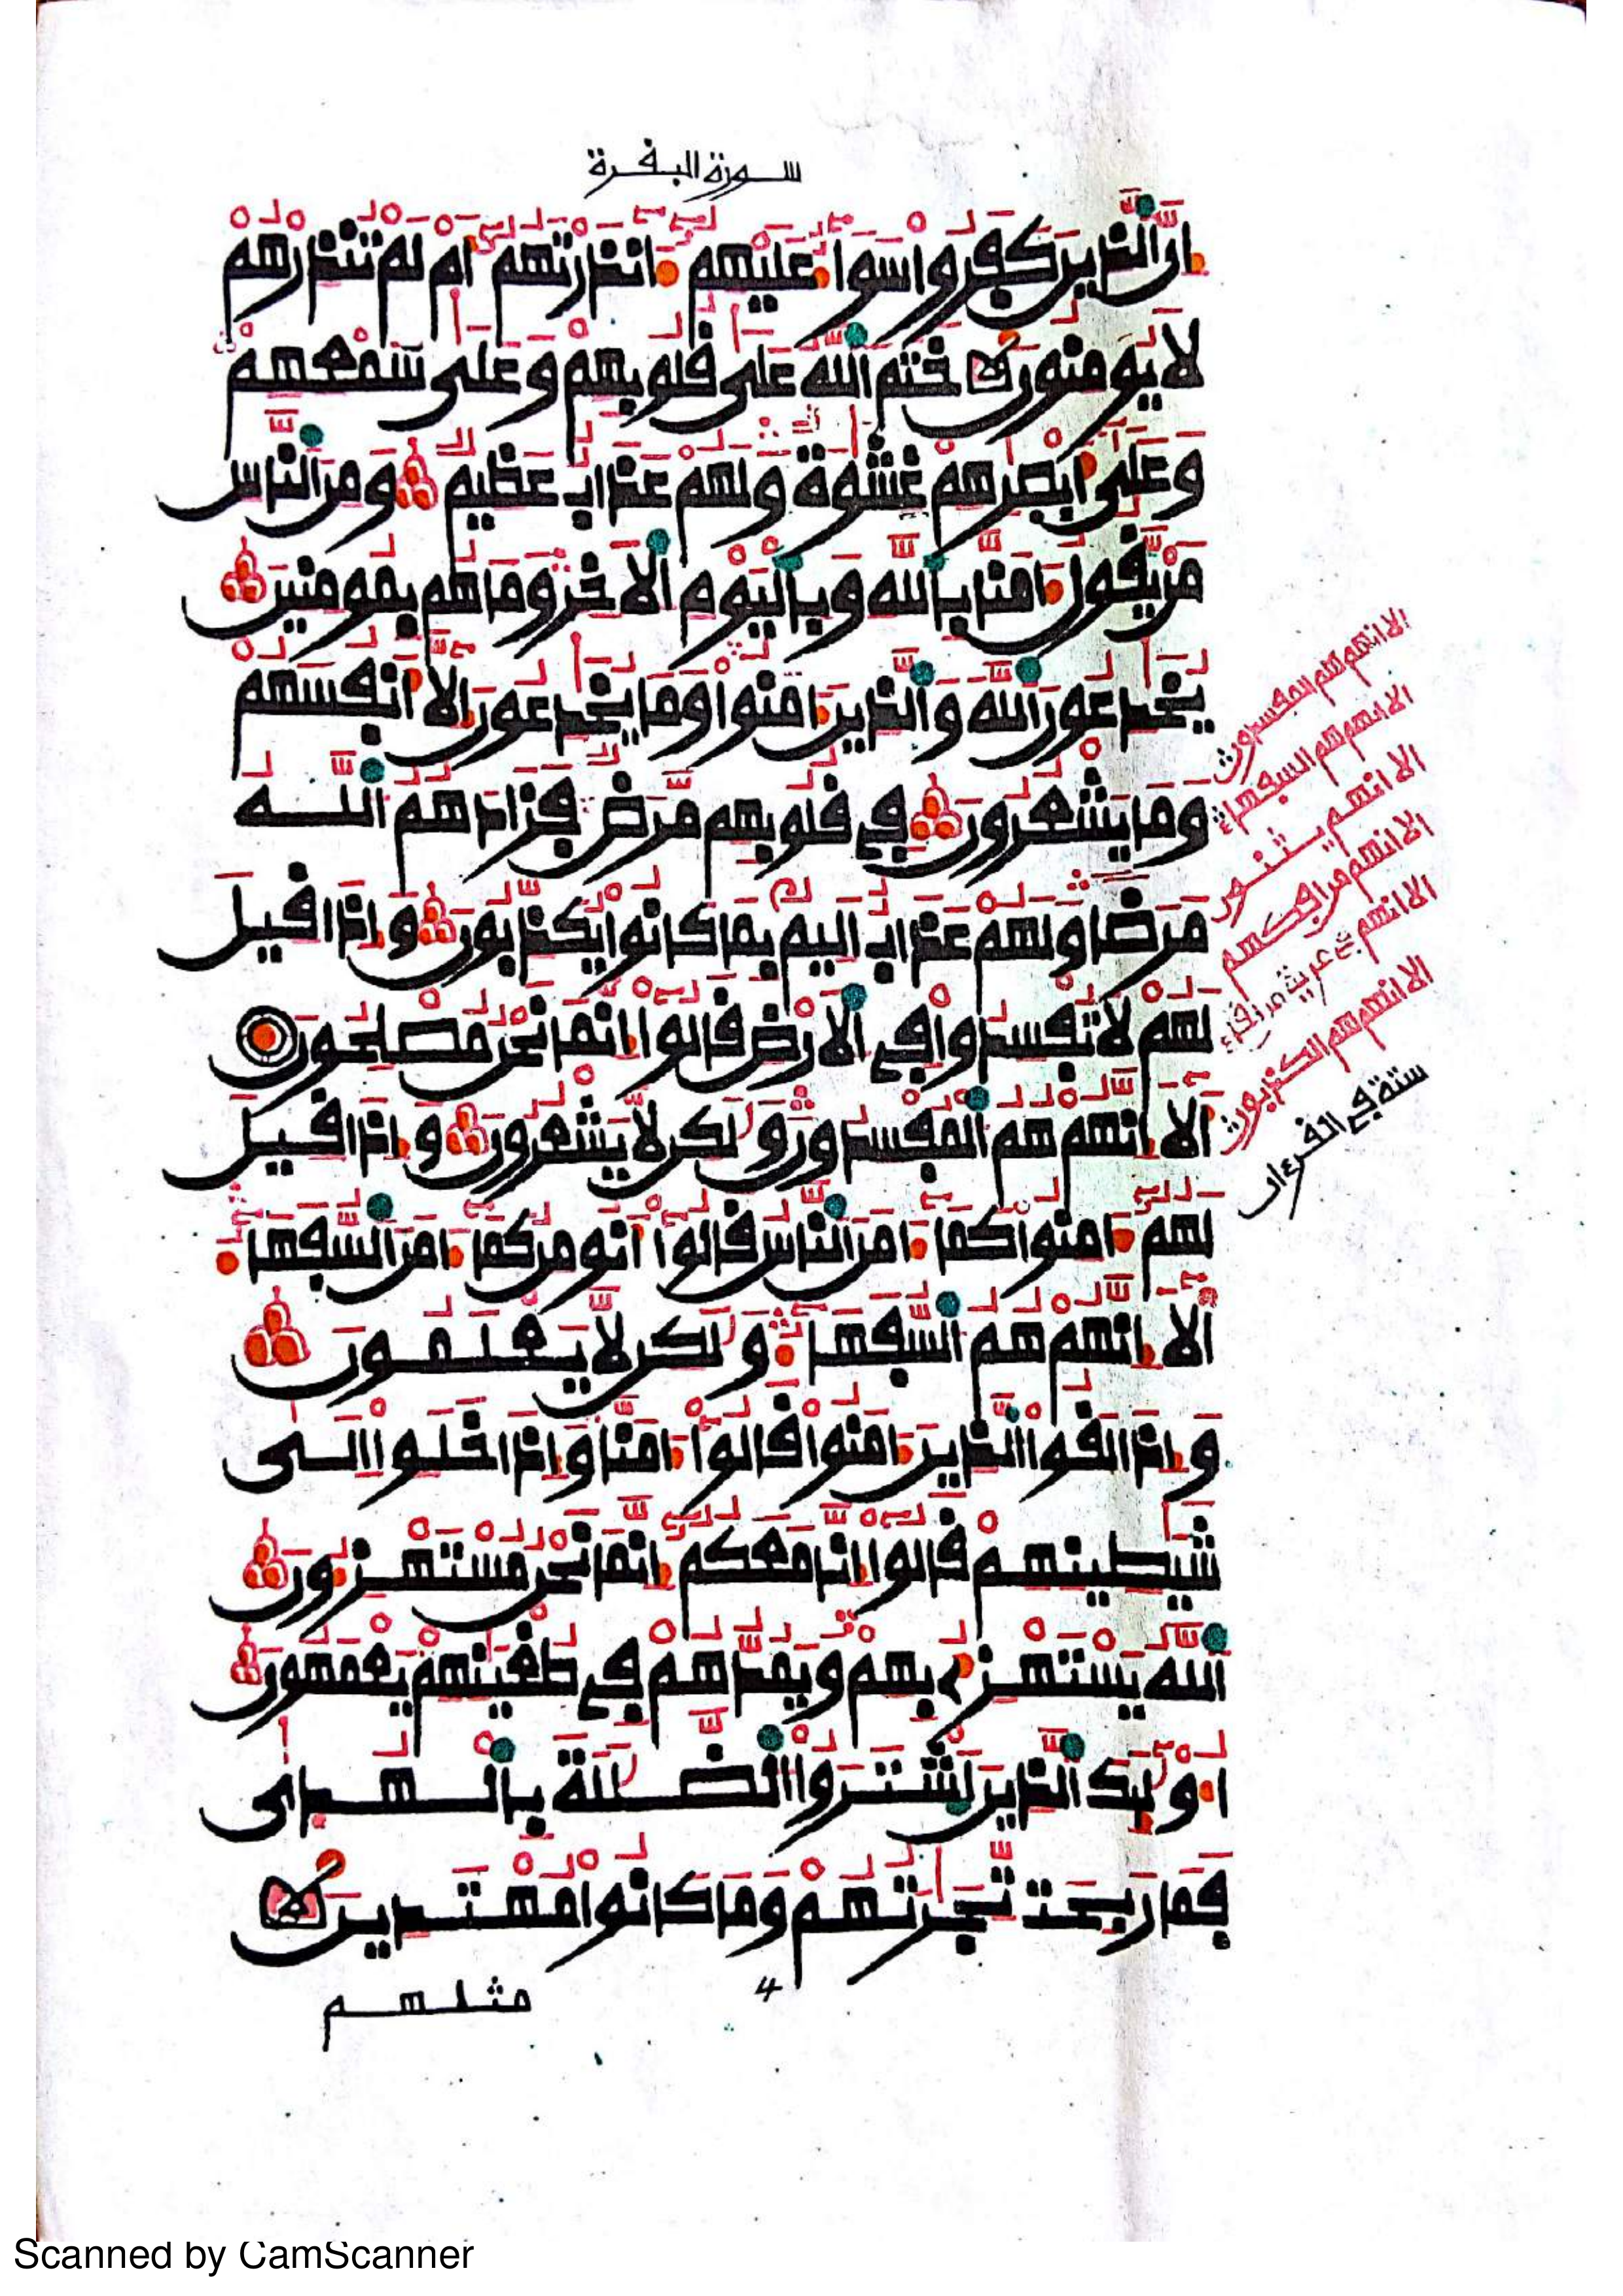 سورة البفرة
اِنَّ ألذِينَ كَفَرُواْ سَوَآءٌ عَلَيْهِمُۥٓ ءَآنذَرْتَهُمُۥٓ أَمْ لَمْ تُنذِرْهُمْ
لَا يُومِنُونَ خَتَمَ أَللَّهُ عَلَىٰ فُلُوبِهِمْ وَعَلَىٰ سَمْعِهِمْ
وَعَلَىٰٓ أَبْصَٰرِهِمْ غِشَٰوَةٌ وَلَهُمْ عَذَابٌ عَظِيمٌ وَمِنَ أَلنَّاسِ
مَنْ يَّفُولُ ءَامَنَّا بِاللَّهِ وَبِالْيَوْمِ أِلَاخِرِ وَمَا هُم بِمُومِنِينَ
يُخَٰدِعُونَ أَللَّهَ وَالذِينَ ءَامَنُواْ وَمَا يُخَٰدِعُونَ إِلَّآ أَنفُسَهُمْ
وَمَا يَشْعُرُونَ فِے فُلُوبِهِم مَّرَضٌ فَزَادَهُمُ أَللَّهُ
مَرَضاً وَلَهُمْ عَذَابٌ أَلِيمٌ بِمَا كَانُواْ يُكَذِّبُونَ وَإِذَا فِيلَ
لَهُمْ لَا تُفْسِدُواْ فِے أِلَارْضِ فَالُوٓاْ إِنَّمَا نَحْنُ مُصْلِحُونَ
أَلَآ إِنَّهُمْ هُمُ أُلْمُفْسِدُونَ وَلَٰكِن لَّا يَشْعُرُونَ وَإِذَا فِيلَ
لَهُمُۥٓ ءَامِنُواْ كَمَآ ءَامَنَ أَلنَّاسُ فَالُوٓاْ أَنُومِنُ كَمَآ ءَامَنَ أَلسُّفَهَآءُ
أَلَآ إِنَّهُمْ هُمُ أُلسُّفَهَآءُ وَلَٰكِن لَّا يَعْلَمُونَ
وَإِذَا لَفُواْ أُلذِينَ ءَامَنُواْ فَالُوٓاْ ءَامَنَّا وَإِذَا خَلَوِاْ اِلَىٰ
شَيَٰطِينِهِمْ فَالُوٓاْ إِنَّا مَعَكُمُۥٓ إِنَّمَا نَحْنُ مُسْتَهْزِءُونَ
أَللَّهُ يَسْتَهْزِۓُ بِهِمْ وَيَمُدُّهُمْ فِے طُغْيَٰنِهِمْ يَعْمَهُونَ
أُوْلَٰٓئِكَ أَلذِينَ أَشْتَرَوُاْ أُلضَّلَٰلَةَ بِالْهُدَىٰ
فَمَا رَبِحَت تِّجَٰرَتُهُمْ وَمَا كَانُواْ مُهْتَدِينَ
4
مثلهم
الا انهم هم المفسدون
الا انهم هم السفهاء
الا انهم يثنون
الا انهم من افكهم
الا انهم في مرية من لقاء
الا انهم هم الكذبون
ستة في الفرءان
Scanned by CamScanner